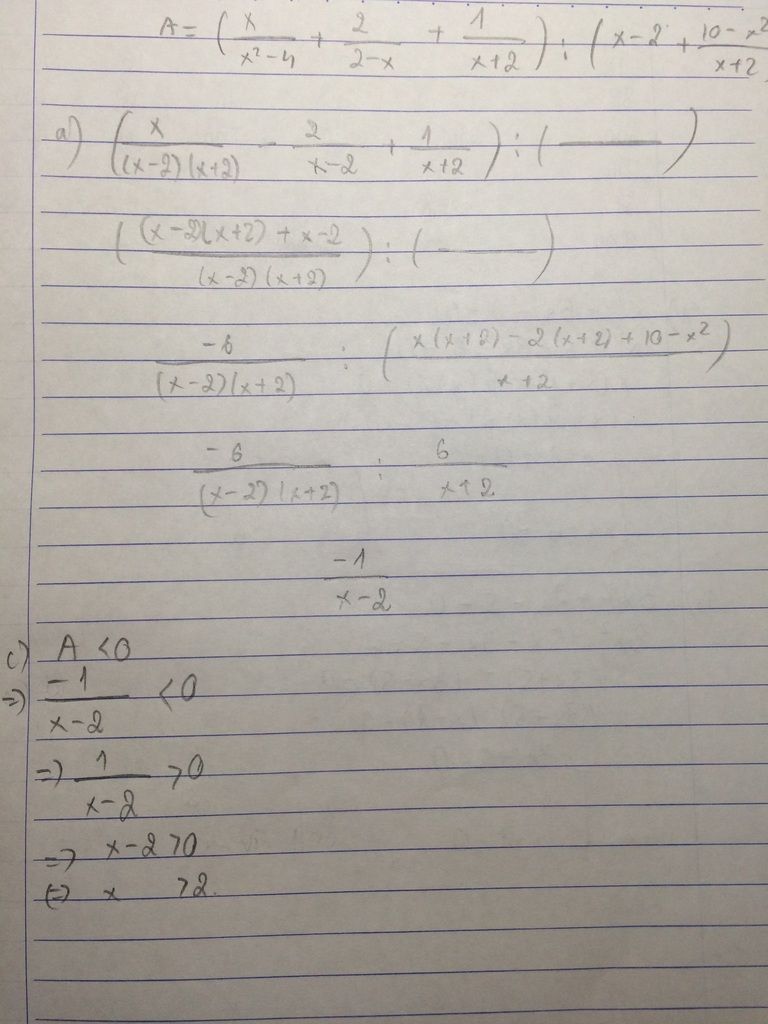 A = (x/(x²-4) + 2/(2-x) + 1/(x+2)) : (x-2 + (10-x²)/(x+2)
a) (x/((x-2)(x+2)) - 2/(x-2) + 1/(x+2)) : (——)
(((x-2)(x+2) + x-2)/((x-2)(x+2))) : (——)
-6/((x-2)(x+2)) : ((x(x+2) - 2(x+2) + 10-x²)/(x+2))
-6/((x-2)(x+2)) : 6/(x+2)
-1/(x-2)
c) A <0
=> -1/(x-2) <0
=> 1/(x-2) >0
=> x-2 >0
(=) x >2.